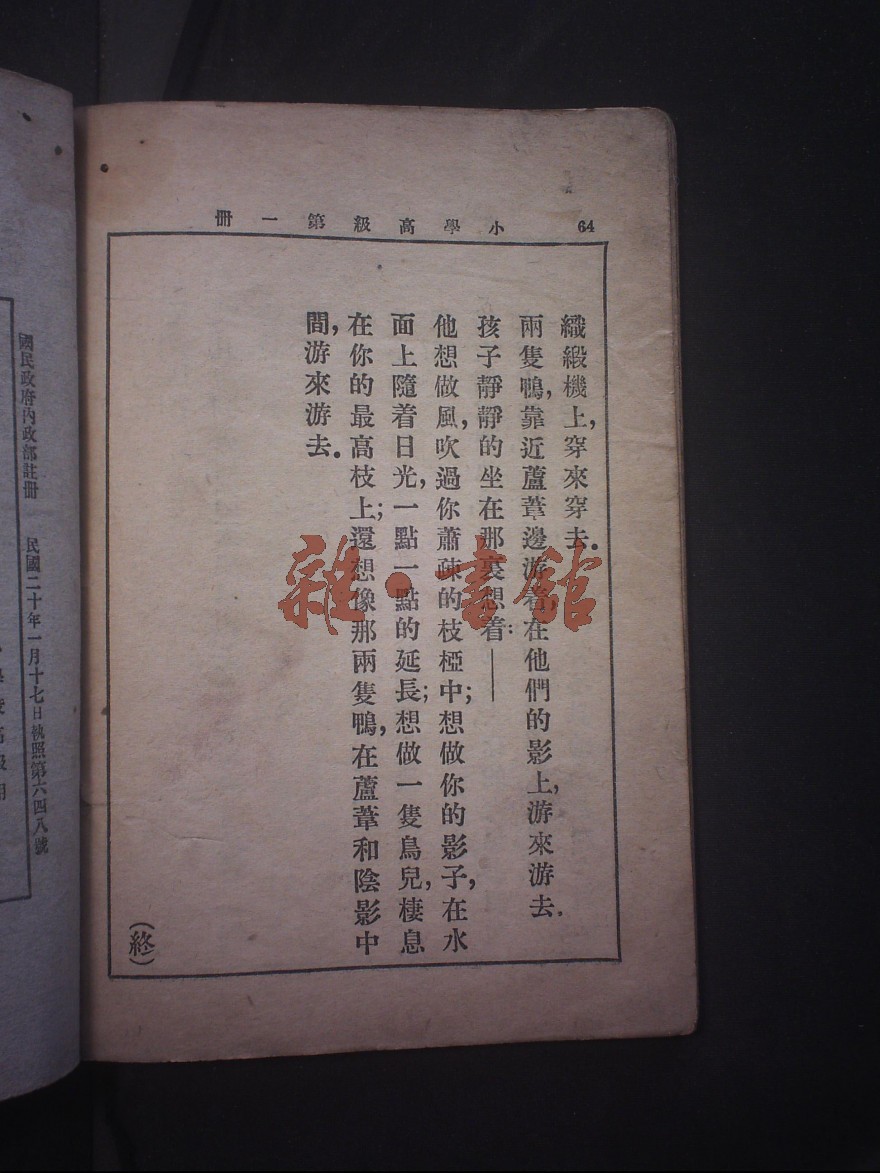 64
小學高級第一冊
織緞機上，穿來穿去．
兩隻鴨，靠近蘆葦邊游着，在他們的影上，游來游去．
孩子靜靜的坐在那裏想着：——
他想做風，吹過你蕭疎的枝椏中；想做你的影子，在水
面上隨着日光，一點一點的延長；想做一隻鳥兒，棲息
在你的最高枝上；還想像那兩隻鴨，在蘆葦和陰影中
間，游來游去．
(終)
雜·書館
國民政府內政部註冊 民國二十年一月十七日執照第六四八號